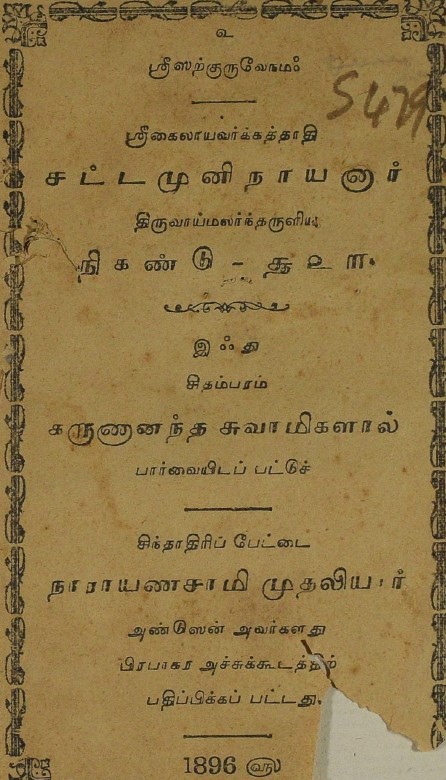 உ
ஸ்ரீஸற்குருவேநமஃ
S 479
ஸ்ரீகைலாயவர்க்கத்தாதி
சட்டமுனிநாயனார்
திருவாய்மலர்ந்தருளிய
நிகண்டு - ௲௨௱.
இஃது
சிதம்பரம்
கருணானந்த சுவாமிகளால்
பார்வையிடப் பட்டுச்
சிந்தாதிரிப் பேட்டை
நாராயணசாமி முதலியார்
அண்டுஸன் அவர்களது
பிரபாகர அச்சுக்கூடத்திற்
பதிப்பிக்கப் பட்டது.
1896 ௵